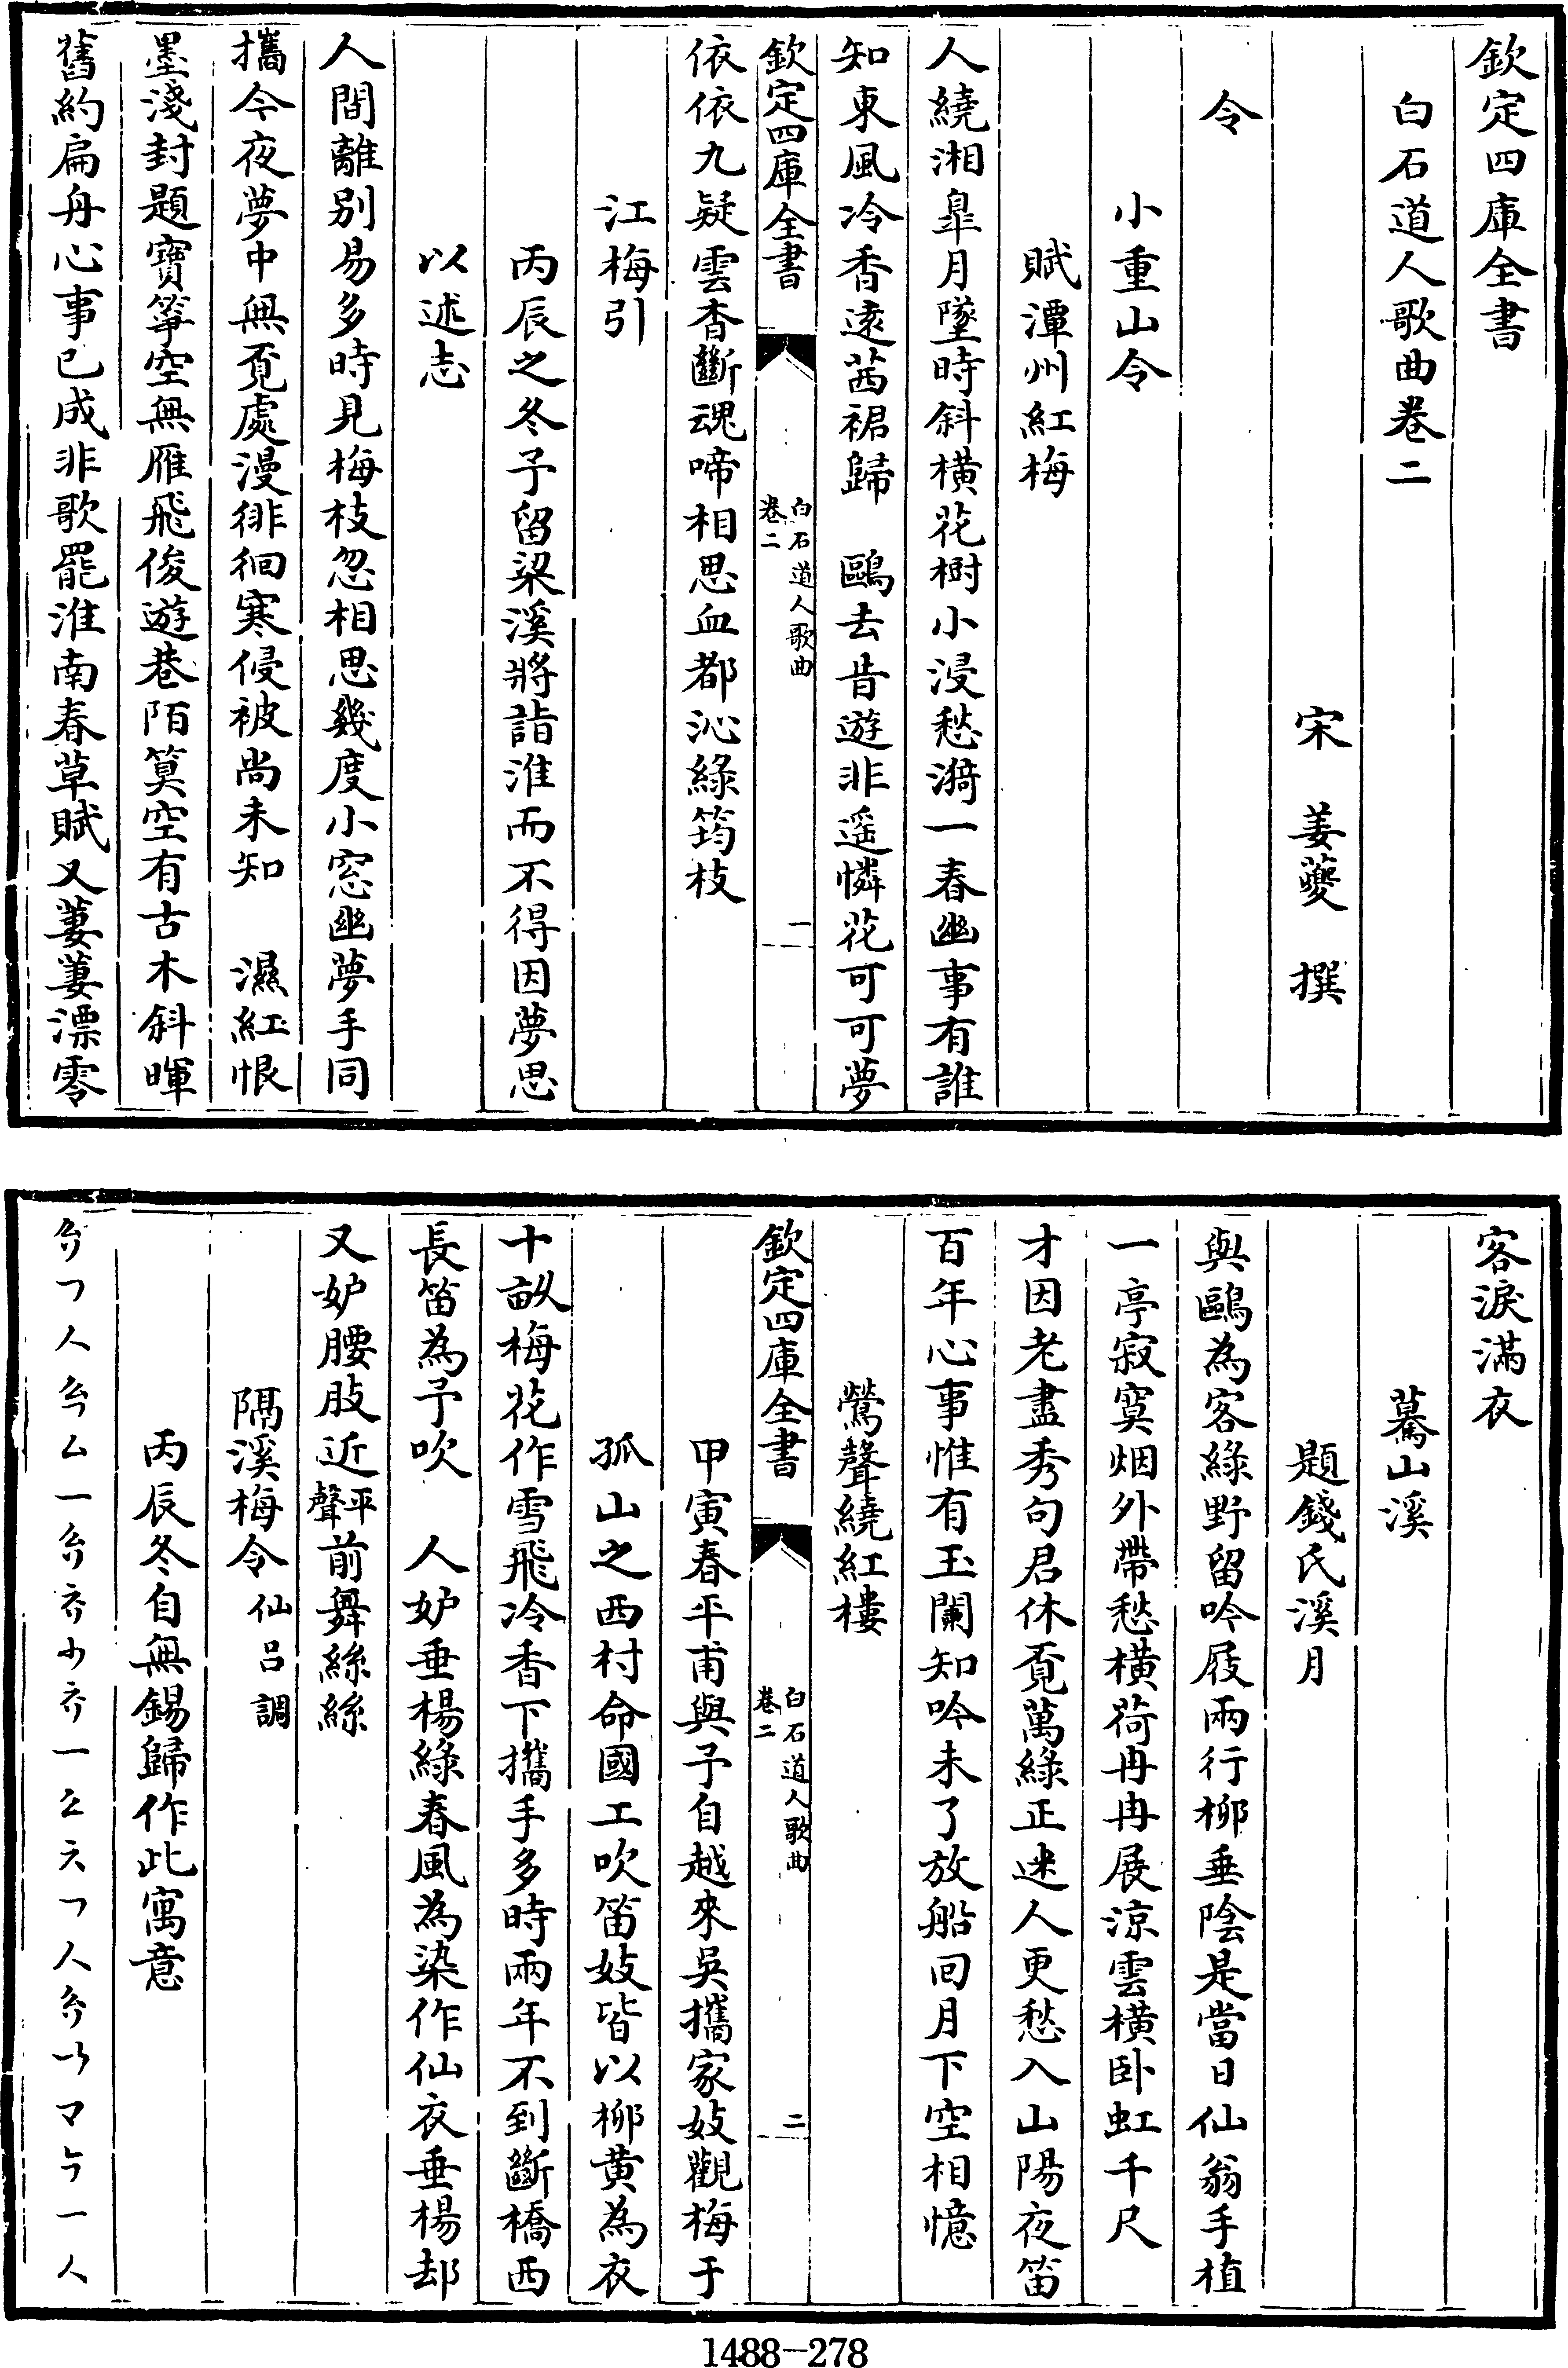 欽定四庫全書
白石道人歌曲卷二
宋　姜夔　撰
令
小重山令
賦潭州紅梅
人繞湘臯月墜時斜橫花樹小浸愁漪一春幽事有誰
知東風冷香遠茜裙歸　鷗去昔遊非遥憐花可可夢
欽定四庫全書
白石道人歌曲
卷二
一
依依九疑雲杳斷魂啼相思血都沁綠筠枝
江梅引
丙辰之冬予留梁溪將詣淮而不得因夢思
以述志
人間離別易多時見梅枝忽相思幾度小窓幽夢手同
攜今夜夢中無覓處漫徘徊寒侵被尚未知　濕紅恨
墨淺封題寶箏空無雁飛俊遊巷陌算空有古木斜暉
舊約扁舟心事已成非歌罷淮南春草賦又萋萋漂零
客淚滿衣
驀山溪
題錢氏溪月
與鷗為客綠野留吟屐兩行柳垂陰是當日仙翁手植
一亭寂寞烟外帶愁橫荷冉冉展涼雲橫卧虹千尺
才因老盡秀句君休覓萬綠正迷人更愁入山陽夜笛
百年心事惟有玉闌知吟未了放船回月下空相憶
鶯聲繞紅樓
欽定四庫全書
白石道人歌曲
卷二
二
甲寅春平甫與予自越來吳攜家妓觀梅于
孤山之西村命國工吹笛妓皆以柳黄為衣
十畝梅花作雪飛冷香下攜手多時兩年不到斷橋西
長笛為予吹　人妒垂楊綠春風為染作仙衣垂楊却
又妒腰肢近平聲前舞絲絲
隔溪梅令仙呂調
丙辰冬自無錫歸作此寓意
1488-278